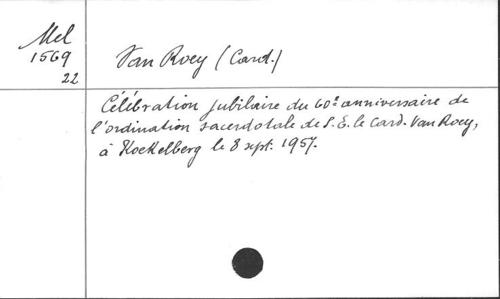 Mel
1569
22
Van Roey (Card.)
Célébration jubilaire du 60e anniversaire de
l'ordination sacerdotale de S. E. le Card. Van Roey,
à Koekelberg le 8 sept. 1957.